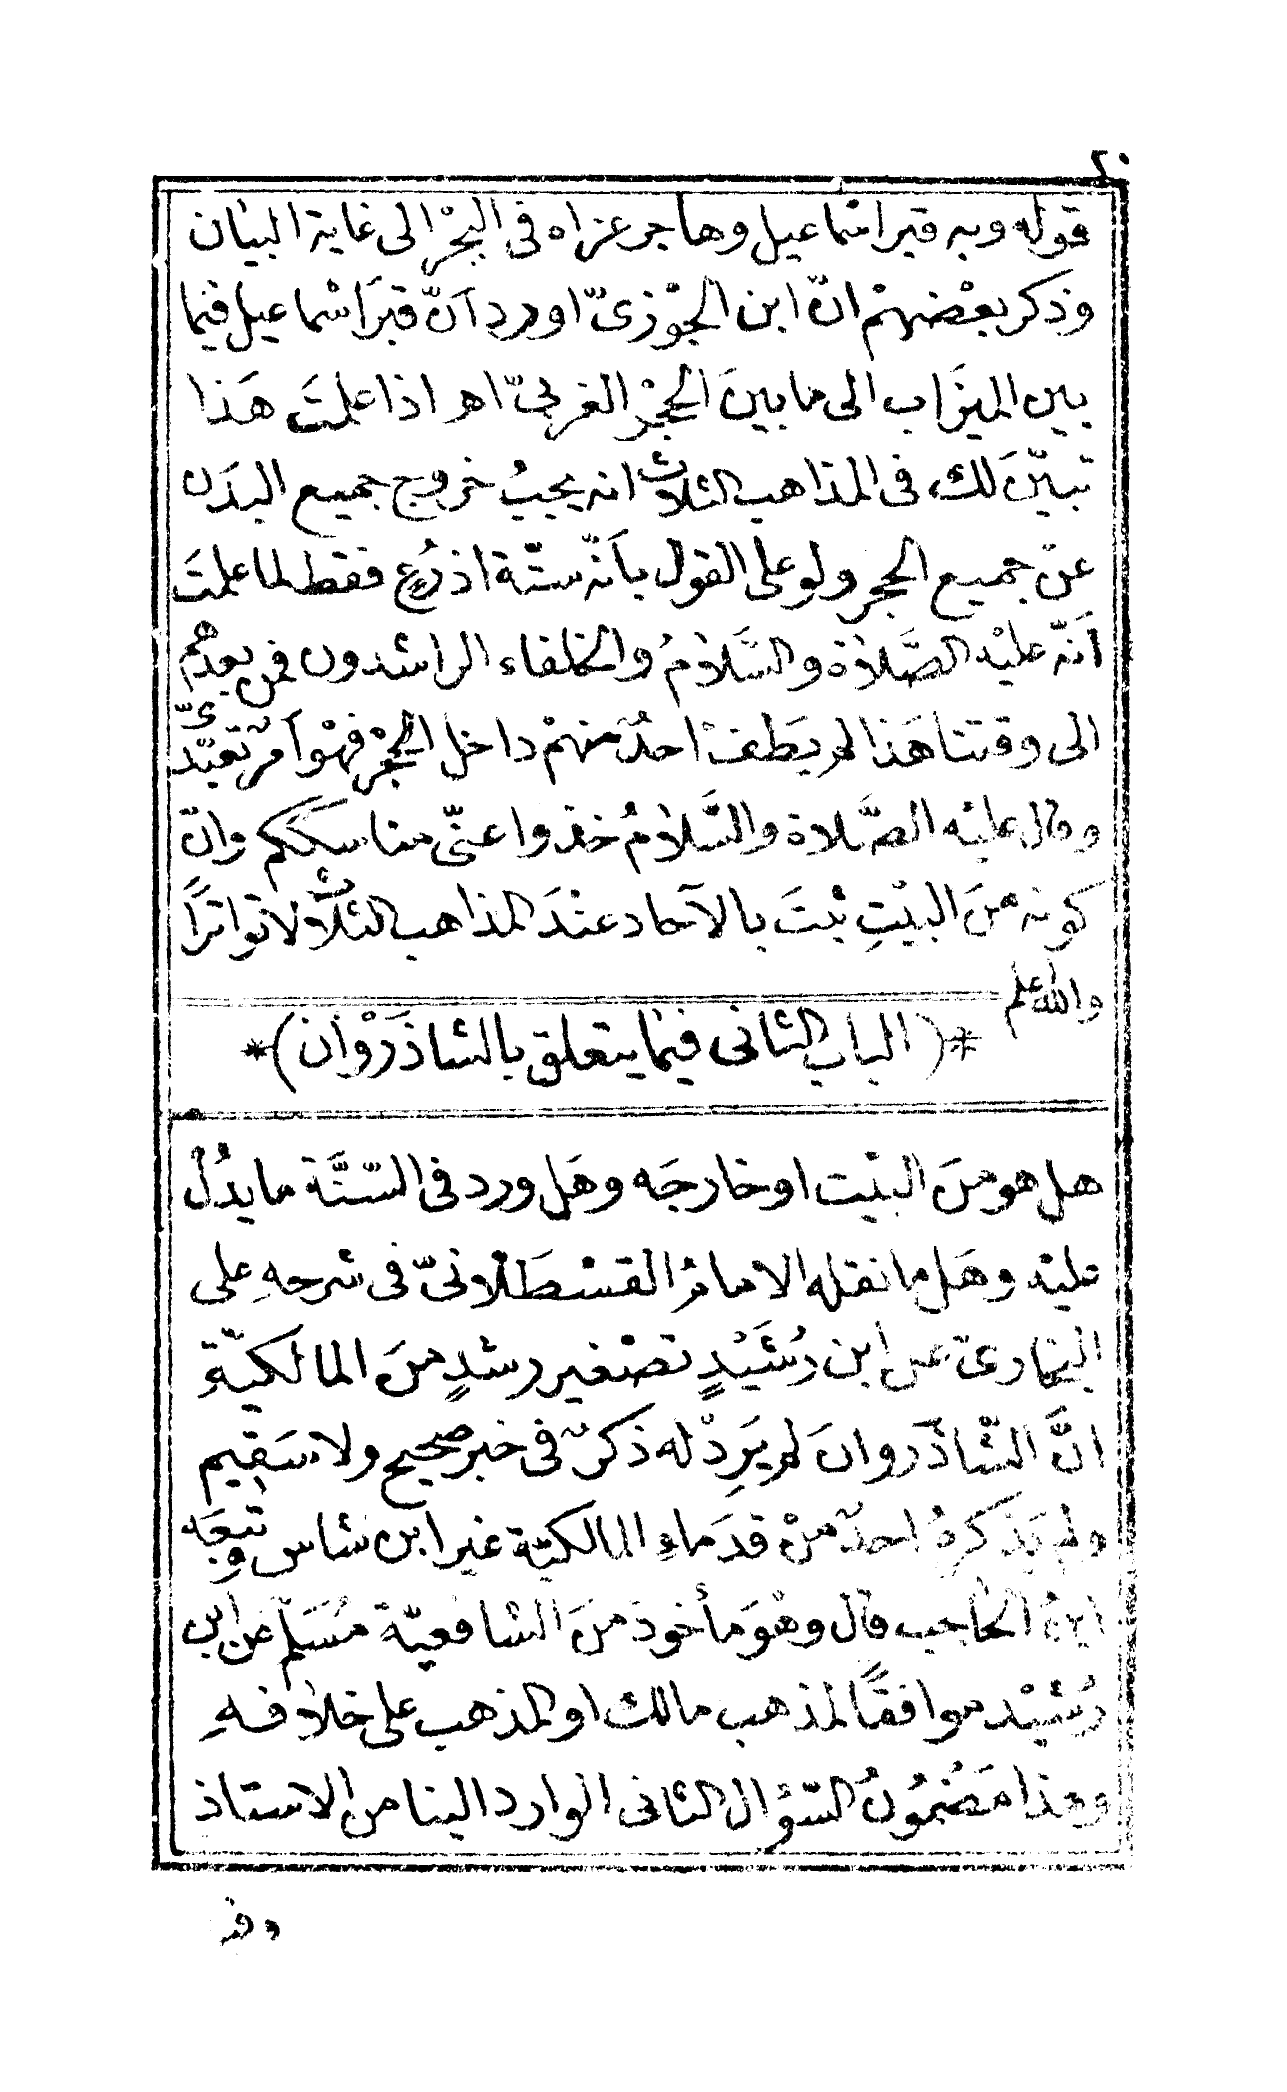 ٢٠
قوله وبه قبر اسْماعيل وهاجر عزاه فى البحْر الى غاية البيان
وذكر بعْضهمْ انّ ابن الجوْزىّ اورد اَنّ قبرَ اسْماعيل فيما
بين الميزَاب الى ما بينَ الحِجْر الغربىّ اهـ اذا علمتَ هَذا
تبيّن لك فى المذاهب الثلاث انه يجبُ خروج جميع البدَن
عنْ جميع الحجر ولو على القول بأنّه ستّة اذرُعٍ فقط لما علمتَ
اَنّه عليْه الصَّلاة والسَّلامُ والخلفاء الراشدون فمن بعدهم
الى وقتنا هَذا لم يَطفْ احدٌ منهمْ داخل الحِجْر فهْو اَمرٌ تعبّدىّ
وقال عليْه الصَّلاة والسَّلامُ خذوا عنّى مناسككم وانّ
كونه منَ البيْتِ ثبتَ بالآحاد عنْدَ المذاهب الثلاث لا تواتراً
والله اعلم
*( الباب الثانى فيما يتعلق بالشاذَرْوَان )*
هل هو منَ البيْت او خارجَه وهَل ورد فى السّنَّة ما يدُلُ
عليْه وهَل ما نقله الامامُ القسْطَلّانىّ فى شرحهِ على
البخارىّ عن ابن رُشَيْدٍ تصْغير رشدٍ منَ المالكيّةِ
انَّ الشّاذروانَ لم يَرِدْ له ذكرٌ فى خبر صحيح ولا سَقِيم
ولم يَذكرهُ احدٌ منْ قدَماءِ المالكيّة غير ابن شاس وتبعَه
ابنُ الحاجب قال وهْوَ مأخوذ منَ الشافعيّة مُسَلّم عن ابن
رُشَيْد موافقًا لمذهب مالك او المذهب على خلافهِ
وهذا مَضْمُونُ السّؤال الثانى الوارد الينا من الاستاذ